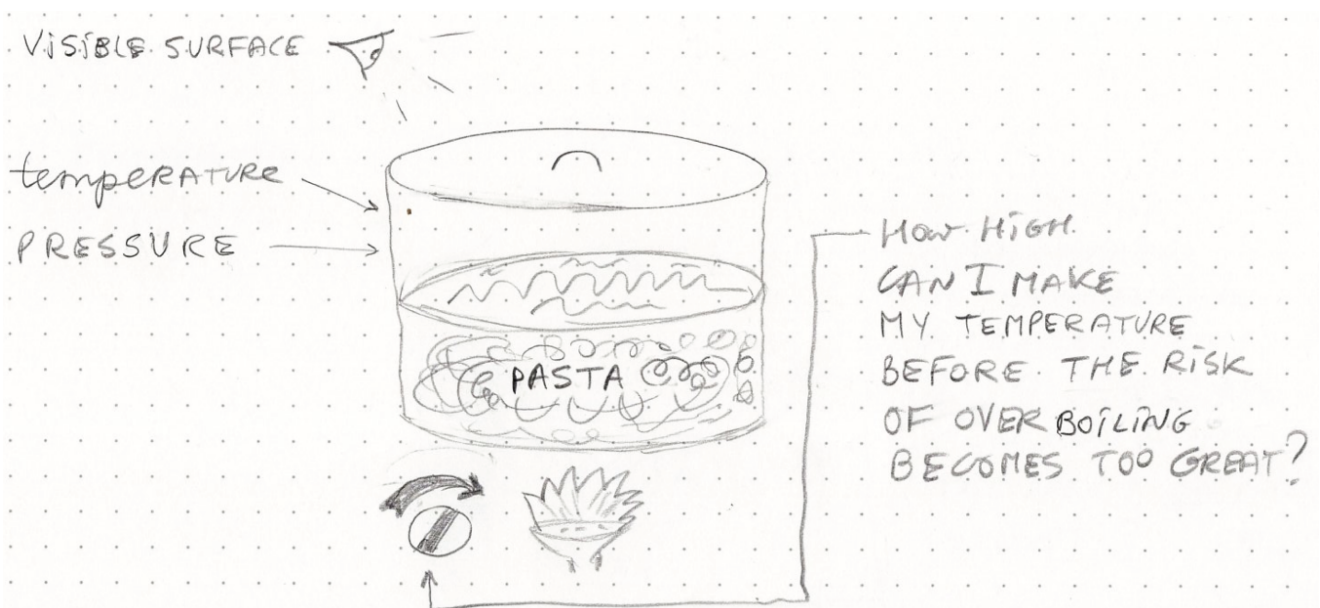 VISIBLE SURFACE
temperature
PRESSURE
HOW HIGH
CAN I MAKE
MY TEMPERATURE
BEFORE THE RISK
OF OVER BOILING
BECOMES TOO GREAT?
PASTA